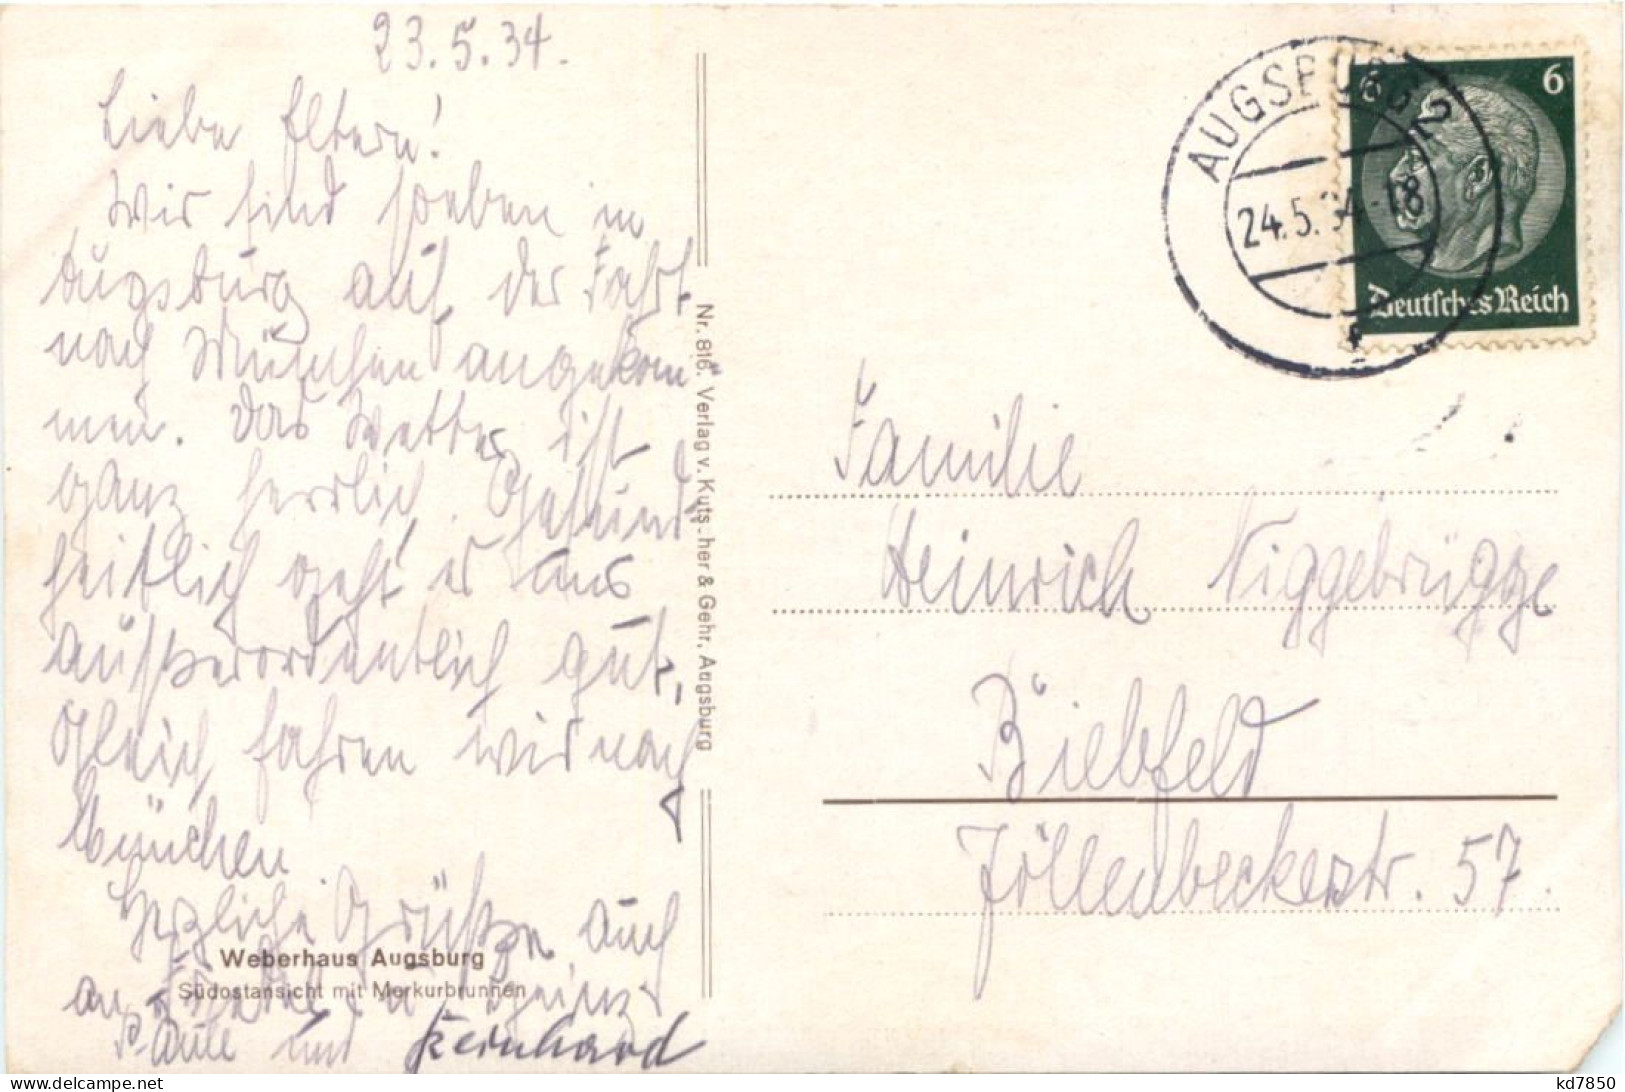 23.5.34.
Liebe Eltern!
Wir sind soeben in
Augsburg auf der Fahrt
nach München angekom-
men. Das Wetter ist
ganz herrlich. Gesund-
heitlich geht es uns
außerordentlich gut.
Gleich fahren wir nach
München
Herzliche Grüße auch
an u. Heinz
Paul und Bernhard
Weberhaus Augsburg
Südostansicht mit Merkurbrunnen
Nr. 816. Verlag v. Kuts her & Gehr, Augsburg
AUGSBURG 2
24.5.34-18
6
Deutsches Reich
Familie
Heinrich Niggebrügge
Bielefeld
Jöllenbeckerstr. 57.
kd7850
delcampe.net